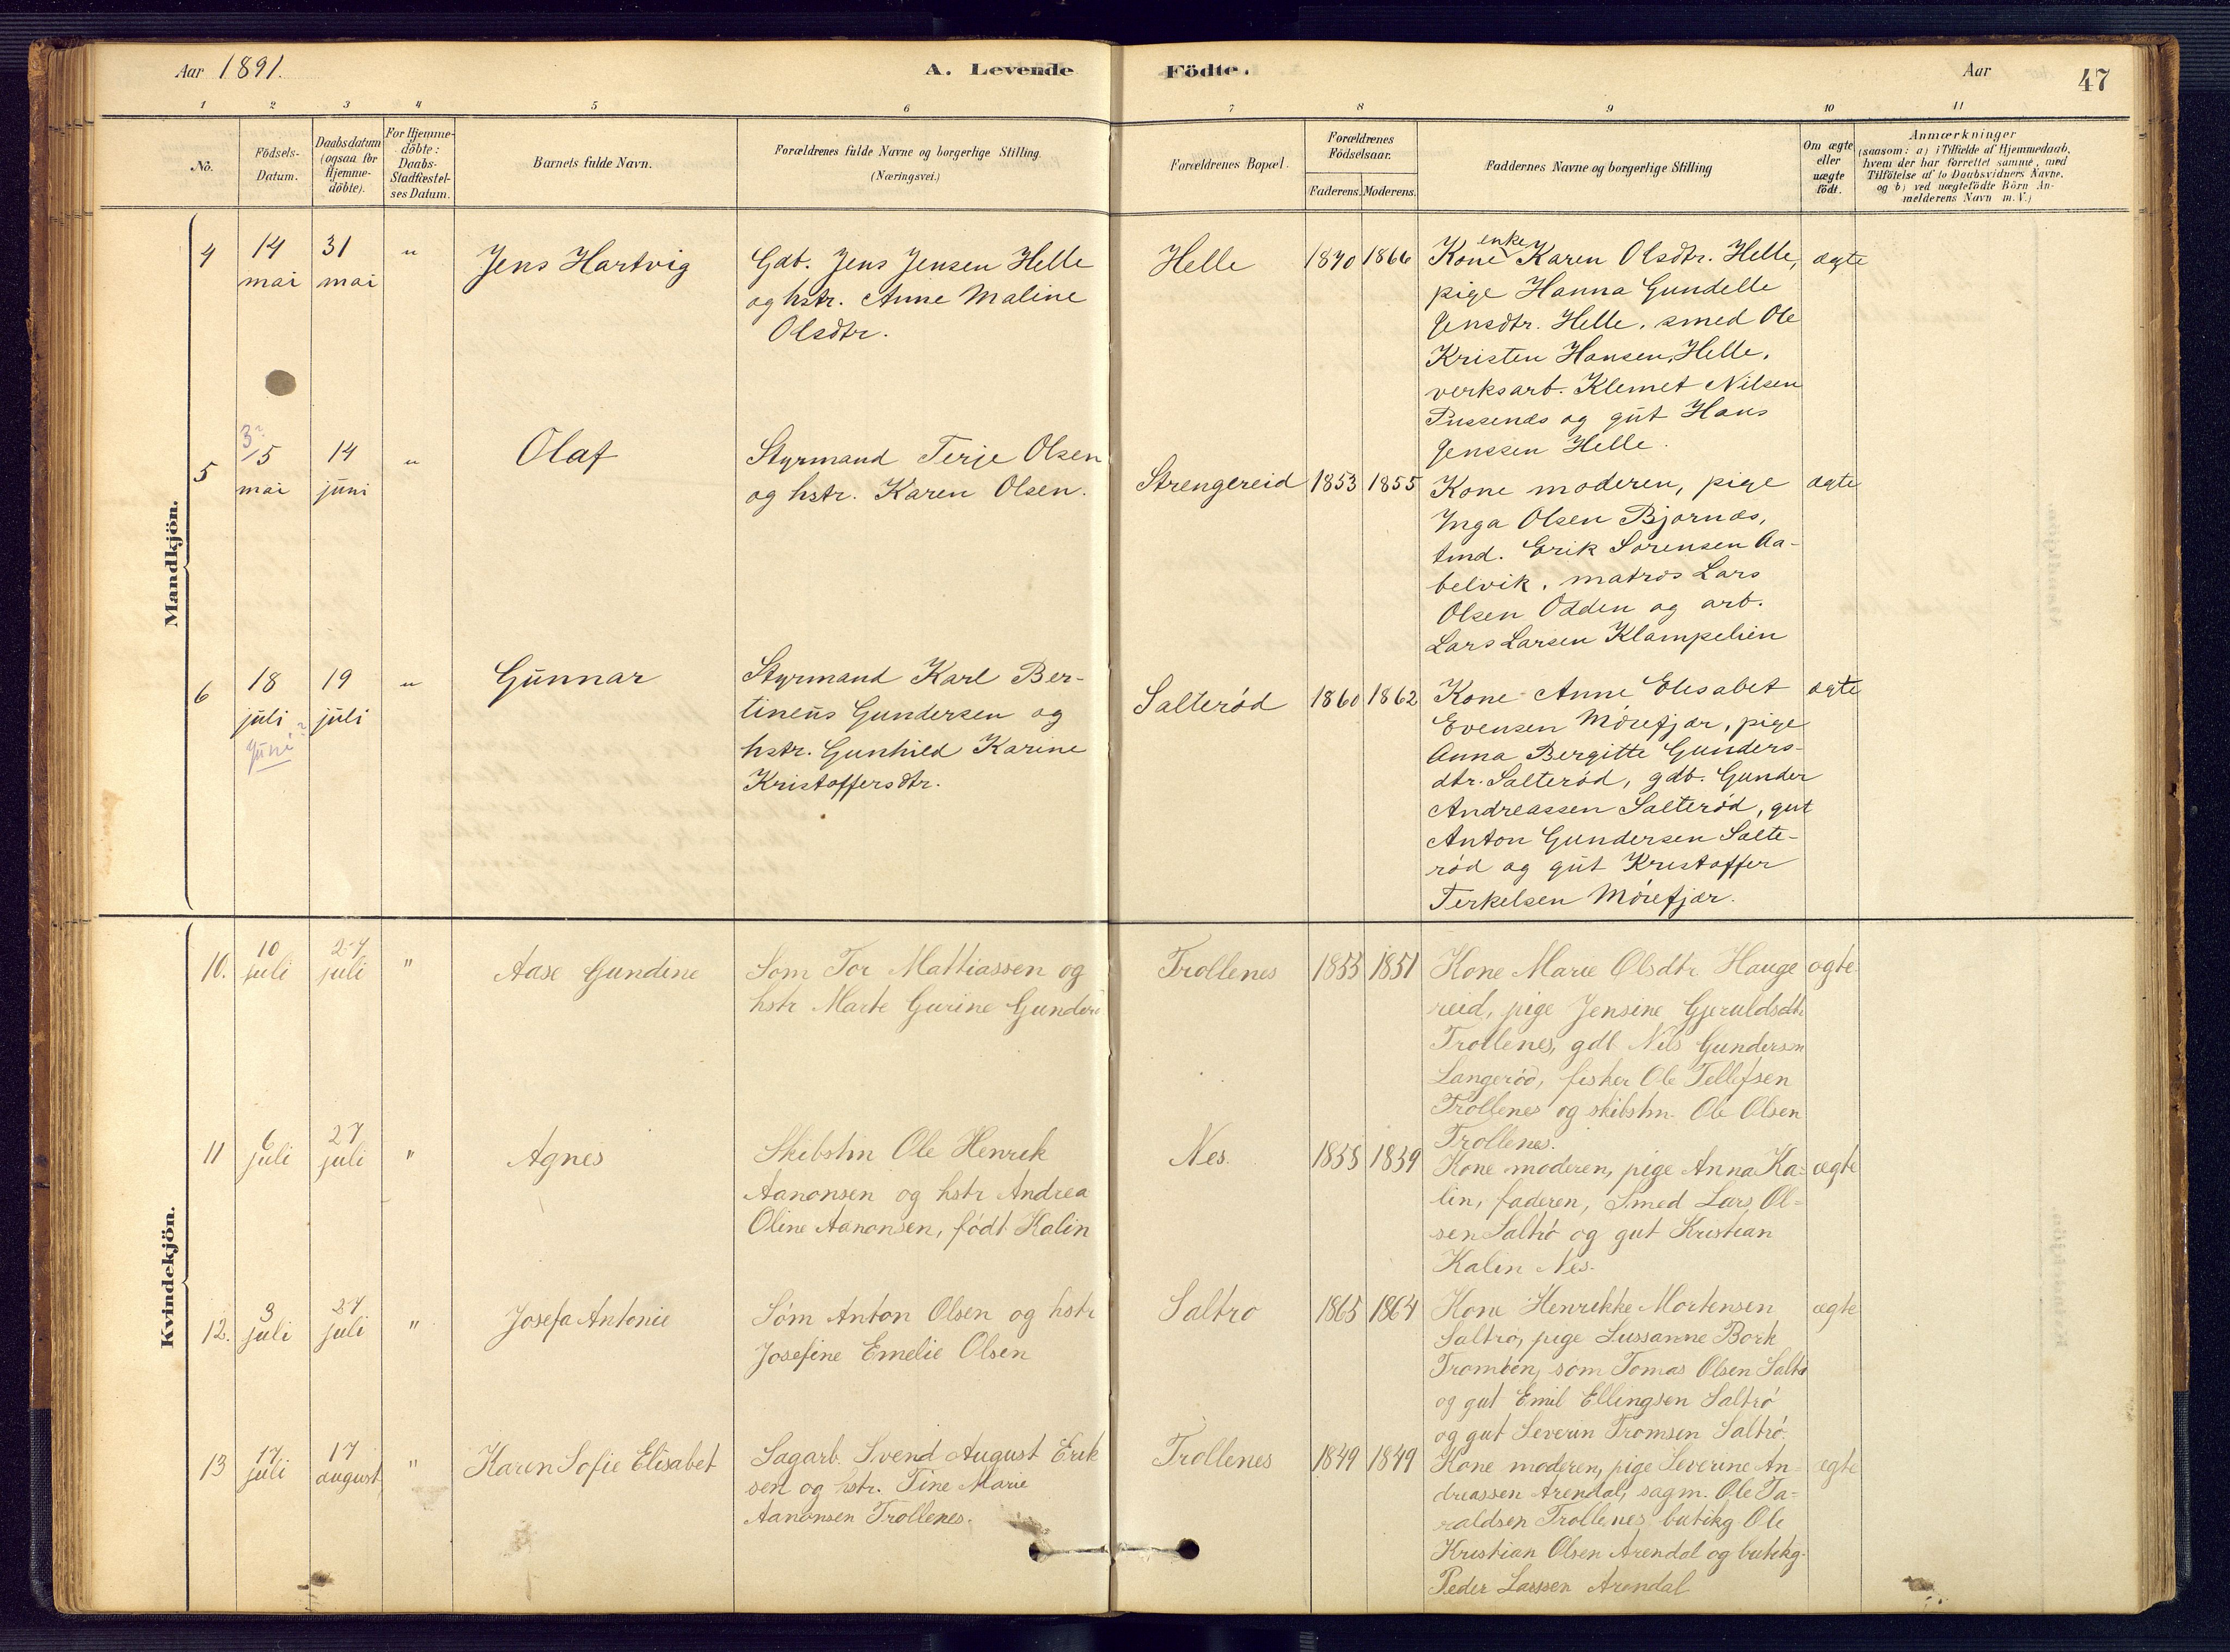 Aar 1891.
A. Levende Födte.
Aar
47
1 2 3 4 5 6 7 8 9 10 11
No.
Födsels-
Datum.
Daabsdatum
(ogsaa for
Hjemme-
döbte).
For Hjemme-
döbte:
Daabs-
Stadfæstel-
ses Datum.
Barnets fulde Navn.
Forældrenes fulde Navne og borgerlige Stilling.
(Næringsvei.)
Forældrenes Bopæl.
Forældrenes
Födselsaar.
Faderens. Moderens.
Faddernes Navne og borgerlige Stilling
Om ægte
eller
uægte
födt.
Anmærkninger
(saasom: a) i Tilfælde af Hjemmedaab,
hvem der har forrettet samme, med
Tilföielse af to Daabsvidners Navne,
og b) ved uægtefödte Börn An-
melderens Navn m.V.)
Mandkjön.
4
14
mai
31
mai
"
Jens Hartvig
Gdb. Jens Jensen Helle
og hstr. Anne Maline
Olsdtr.
Helle
1840 1866
enke
Kone Karen Olsdtr. Helle,
pige Hanna Gundelle
Jensdtr. Helle, smed Ole
Kristen Hansen, Helle,
verksarb. Klemet Nilsen
Pussenes og gut Hans
Jenssen Helle.
ægte
5
3?
15
mai
14
juni
"
Olaf
Styrmand Terje Olsen
og hstr. Karen Olsen.
Strengereid
1853 1855
Kone moderen, pige
Inga Olsen Bjornæs,
tmd. Erik Sørensen Aa-
belvik, matros Lars
Olsen Odden og arb.
Lars Larsen Klampelien
ægte
6
18
juli
juni?
19
juli
"
Gunnar
Styrmand Karl Ber-
tineus Gundersen og
hstr. Gunhild Karine
Kristoffersdtr.
Salterød
1860 1862
Kone Anne Elisabet
Evensen Mörefjær, pige
Anna Bergitte Gunders-
dtr. Salteröd, gdb. Gunder
Andreassen Salteröd, gut
Anton Gundersen Salte-
röd og gut Kristoffer
Terkelsen Mörefjær.
ægte
Kvindekjön.
10.
10
juli
27
juli
"
Aase Gundine
Søm Tor Mattiassen og
hstr Marte Gurine Gunders
Trollenes
1853 1851
Kone Marie Olsdtr Hauge
reid, pige Jensine Gjeruldsdtr
Trollenes, gdb Nils Gundersen
Langerød, fisker Ole Tellefsen
Trollenes og skibstm. Ole Olsen
Trollenes.
ægte
11
6
juli
27
juli
"
Agnes
Skibstm Ole Henrik
Aanonsen og hstr Andrea
Oline Aanonsen, født Kalin
Nes.
1858 1859
Kone moderen, pige Anna Ka-
lin, faderen, Smed Lars Ol-
sen Saltrö og gut Kristian
Kalin Nes.
ægte
12.
3
juli
27
juli
"
Josefa Antonie
Söm Anton Olsen og hstr
Josefine Emelie Olsen
Saltro
1865 1864
Kone Henrikke Mortensen
Saltrö, pige Sussanne Bork
Tromøen, søm Tomas Olsen Saltrö
og gut Emil Ellingsen Saltrö
og gut Severin Tromsen Saltrö.
ægte
13
17
juli
17
august
"
Karen Sofie Elisabet
Sagarb. Svend August Erik
sen og hstr. Tine Marie
Aanonsen Trollenes.
Trollenes
1849 1849
Kone moderen, pige Severine An-
dreassen Arendal, sagm. Ole Ta-
raldsen Trollenes, butikg. Ole
Kristian Olsen Arendal og butikg.
Peder Larssen Arendal
ægte